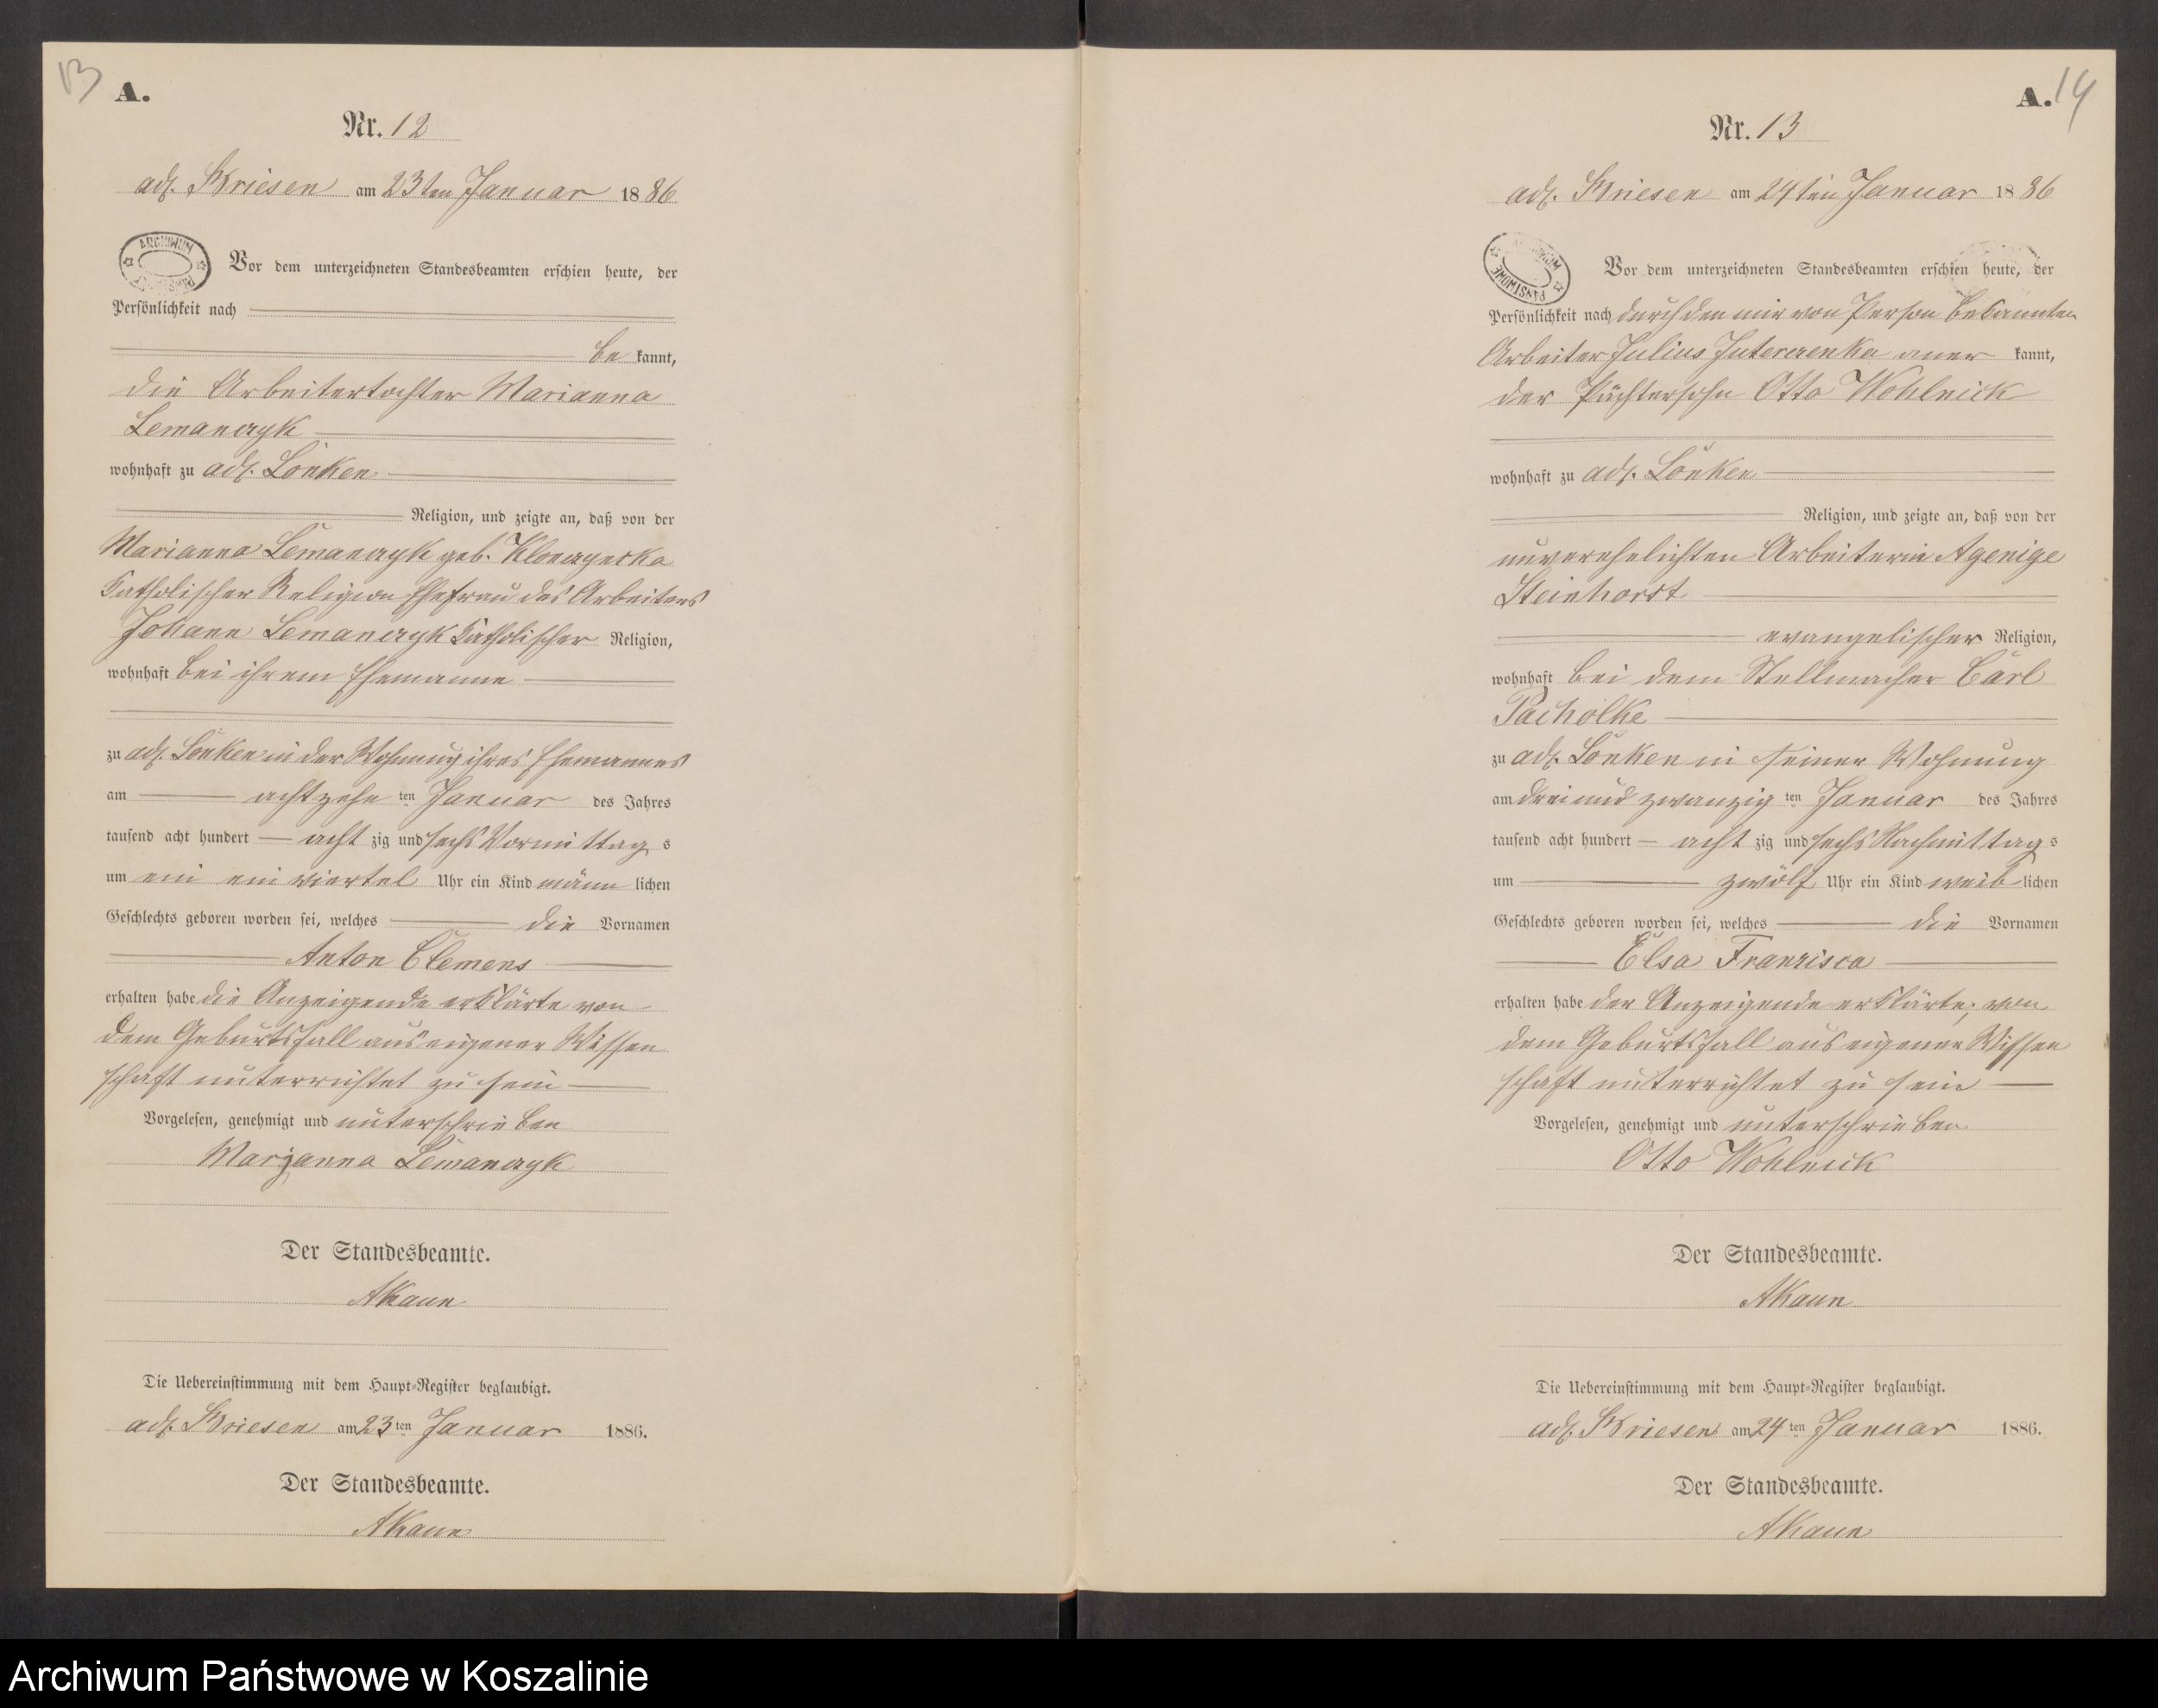 13
A.
Nr. 12
adl. Briesen am 23ten Januar 1886
ARCHIWUM
Vor dem unterzeichneten Standesbeamten erschien heute, der
Persönlichkeit nach
be kannt,
die Arbeitertochter Marianna
Lemanczyk
wohnhaft zu adl. Lonken
Religion, und zeigte an, daß von der
Marianna Lemanczyk geb.
Katholischer Religion Ehefrau des Arbeiters
Johann Lemanczyk Katholischer Religion,
wohnhaft bei ihrem Ehemanne
zu adl. Lonken in der Wohnung ihres Ehemannes
am achtzehn ten Januar des Jahres
tausend acht hundert acht zig und sechs Vormittag s
um ein ein viertel Uhr ein Kind männ lichen
Geschlechts geboren worden sei, welches die Vornamen
Anton Clemens
erhalten habe die Anzeigende erklärte von
dem Geburtsfall aus eigener Wissen
schaft unterrichtet zu sein
Vorgelesen, genehmigt und unterschrieben
Marjanna Lemanczyk
Der Standesbeamte.
AKaun
Die Uebereinstimmung mit dem Haupt-Register beglaubigt.
adl. Briesen am 23ten Januar 1886.
Der Standesbeamte.
AKaun
A. 14
Nr. 13
adl. Briesen am 24ten Januar 1886
PAŃSTWOWE
Vor dem unterzeichneten Standesbeamten erschien heute, der
Persönlichkeit nach durch den mir von Person bekannten
Arbeiter Julius aner kannt,
der Pächtersohn Otto Wohlneick
wohnhaft zu adl. Lonken
Religion, und zeigte an, daß von der
unverehelichten Arbeiterin
Steinhorst
evangelischer Religion,
wohnhaft bei dem Stellmacher Carl
Pacholke
zu adl. Lonken in seiner Wohnung
am drei und zwanzig ten Januar des Jahres
tausend acht hundert acht zig und sechs Nachmittag s
um zwölf Uhr ein Kind weib lichen
Geschlechts geboren worden sei, welches die Vornamen
Elsa Franzisca
erhalten habe der Anzeigende erklärte, von
dem Geburtsfall aus eigener Wissen
schaft unterrichtet zu sein
Vorgelesen, genehmigt und unterschrieben
Otto Wohlneick
Der Standesbeamte.
AKaun
Die Uebereinstimmung mit dem Haupt-Register beglaubigt.
adl. Briesen am 24ten Januar 1886.
Der Standesbeamte.
AKaun
Archiwum Państwowe w Koszalinie